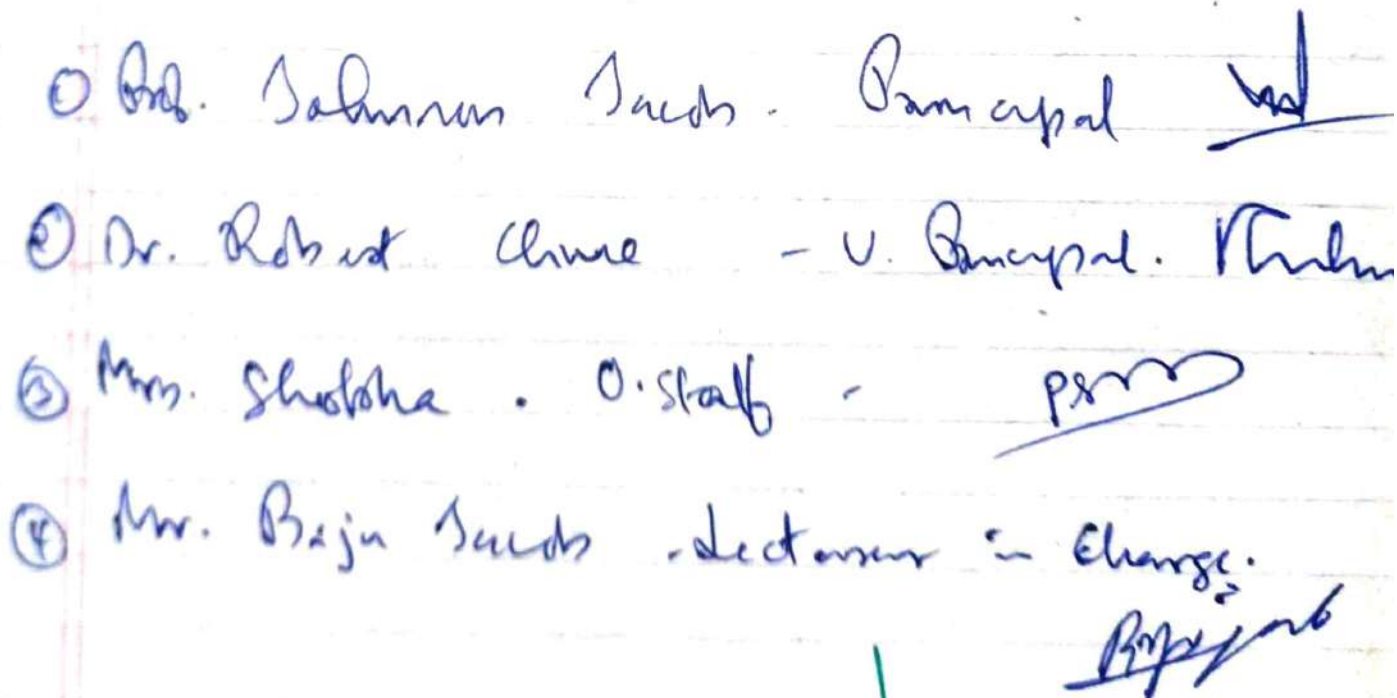 ① Prof. Johnson Jacob. Principal
② Dr. Robert Clive - V. Principal.
③ Mrs. Shobha. O. Staff -
④ Mr. Baju Jacob. Lecturer in Charge.